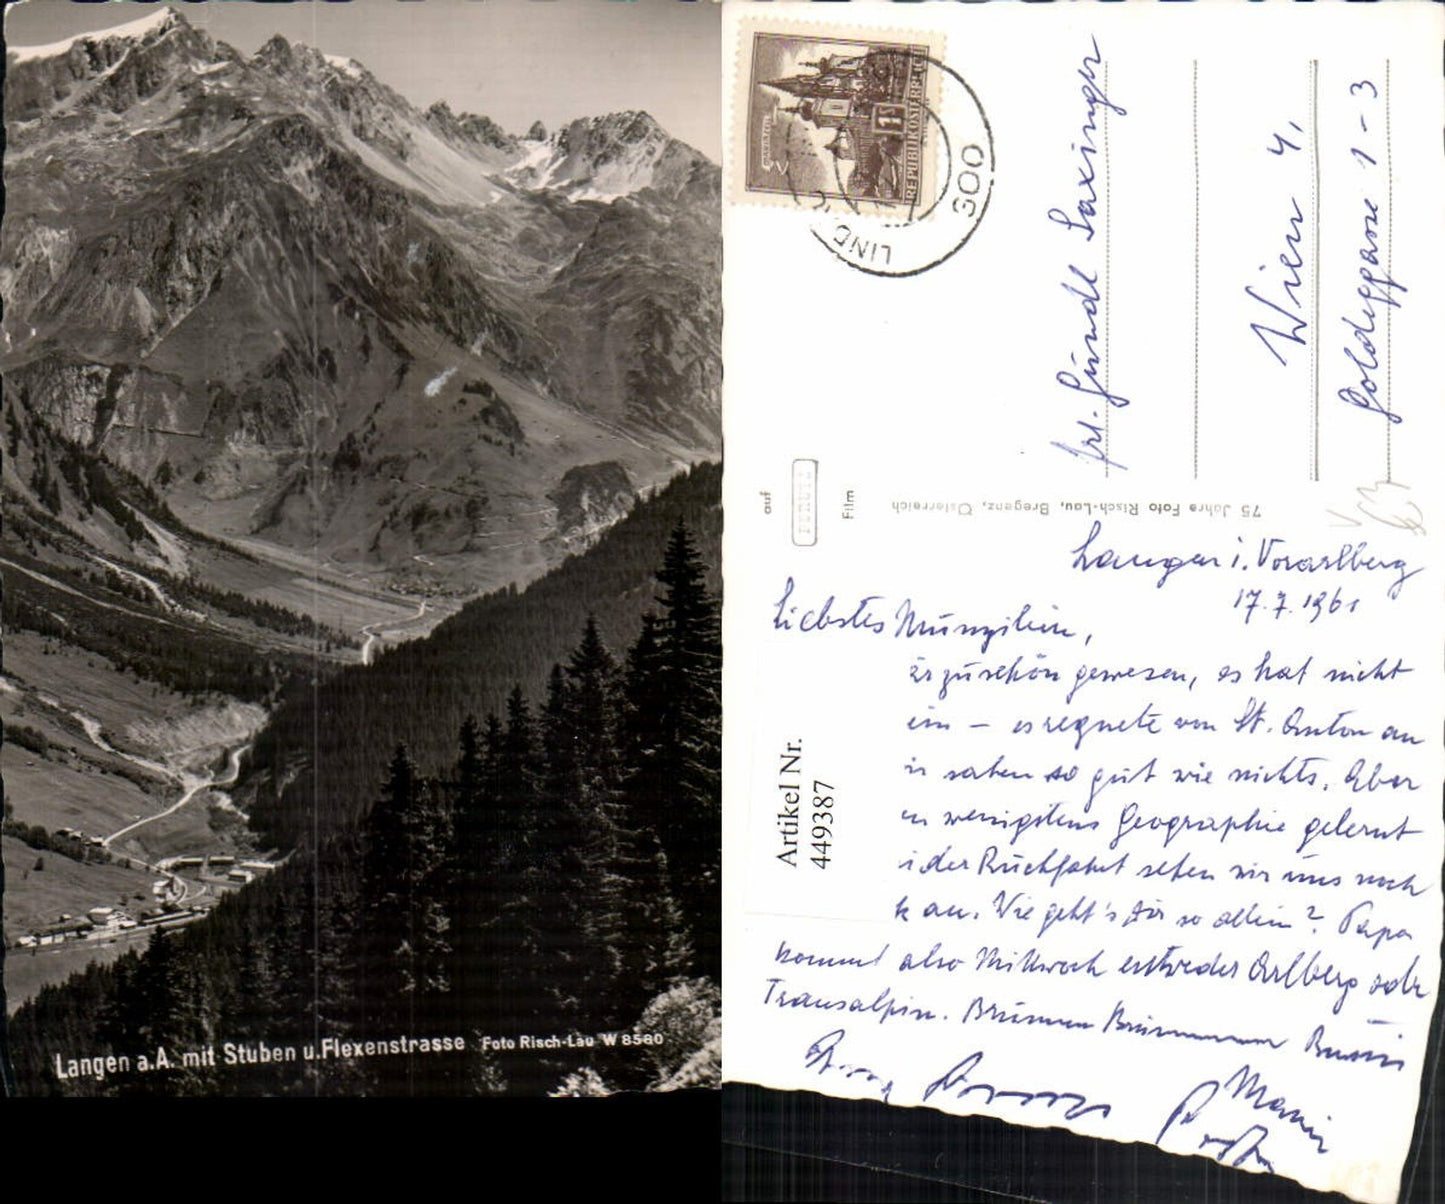 Langen a.A. mit Stuben u. Flexenstrasse Foto Risch-Lau W 8580
REPUBLIK ÖSTERREICH
1
LINZ
300
Frl. Gündl Saxinger
Wien 4,
Goldeggasse 1-3
auf
PERUTZ
Film
75 Jahre Foto Risch-Lau, Bregenz, Österreich
Langen i. Vorarlberg
17.7.1961
Liebstes
schön gewesen, es hat nicht
– es regnete von St. Anton an
sahen so gut wie nichts. Aber
wenigstens Geographie gelernt
der Rückfahrt sehen wir uns noch
an. Wie geht's Dir so allein? Papa
kommt also Mittwoch entweder Arlberg oder
Transalpin.
Artikel Nr.
449387